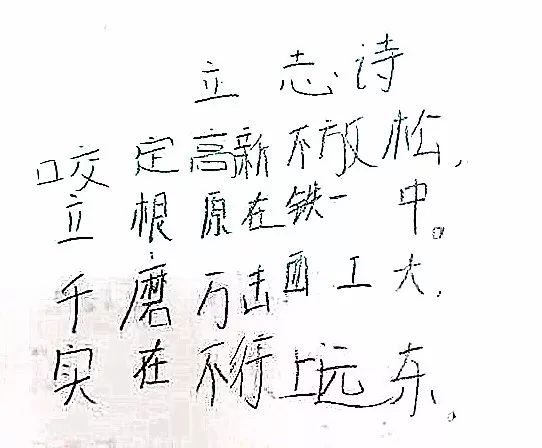 立志诗
咬定高新不放松,
立根原在铁一中。
千磨万击西工大,
实在不行上远东。